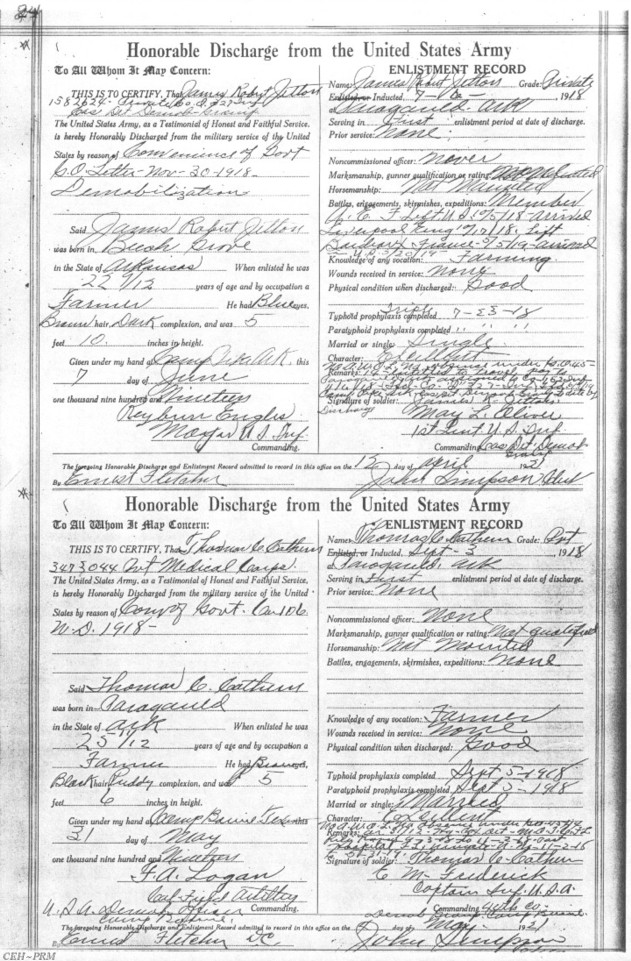 24
Honorable Discharge from the United States Army
To All Whom It May Concern:
THIS IS TO CERTIFY, That James Robert Jetton
1582624 Private Co. C.
The United States Army, as a Testimonial of Honest and Faithful Service,
is hereby Honorably Discharged from the military service of the United
States by reason of Convenience of Govt
C.O. Letter Nov-20-1918-
Demobilization
Said James Robert Jetton
was born in Beech Grove
in the State of Arkansas When enlisted he was
22 9/12 years of age and by occupation a
Farmer He had Blue eyes,
Brown hair, Dark complexion, and was 5
feet 10 inches in height.
Given under my hand at Camp Pike Ark, this
7 day of June
one thousand nine hundred and Nineteen
Major U S Inf.
Commanding.
ENLISTMENT RECORD
Name: James Robert Jetton Grade: Private
Enlisted, or Inducted, 7- 1918
at Paragould. Ark
Serving in First enlistment period at date of discharge.
Prior service: None
Noncommissioned officer: Never
Marksmanship, gunner qualification or rating: Not Qualified
Horsemanship: Not Mounted
Battles, engagements, skirmishes, expeditions: Member
A. E. F. Left U.S. /18 arrived
Liverpool Eng /18. Left
France 3/5/19 arrived
U.S.
Knowledge of any vocation: Farming
Wounds received in service: None
Physical condition when discharged: Good
Typhoid prophylaxis completed 7-23-18
Paratyphoid prophylaxis completed " " "
Married or single: Single
Character: Excellent
Remarks: No A.W.O.L. No absence under
Signature of soldier: James R. Jetton
May L. Oliver
1st Lieut U.S. Inf.
Commanding Cas Det Demob
Group
The foregoing Honorable Discharge and Enlistment Record admitted to record in this office on the 12 day of April 1921
By Ernest Fletcher John Simpson Clerk
Honorable Discharge from the United States Army
To All Whom It May Concern:
THIS IS TO CERTIFY, That Thomas C. Cathern
3473044 Pvt Medical Corps.
The United States Army, as a Testimonial of Honest and Faithful Service,
is hereby Honorably Discharged from the military service of the United
States by reason of Conv of Govt. Cir 106
W.D. 1918-
Said Thomas C. Cathern
was born in Paragould
in the State of Ark When enlisted he was
25 /12 years of age and by occupation a
Farmer He had Brown eyes,
Black hair, Ruddy complexion, and was 5
feet 6 inches in height.
Given under my hand at Camp Bowie Texas this
31 day of May
one thousand nine hundred and Nineteen
F.A. Logan
Col. Field Artillery
Commanding.
U.S.A.
ENLISTMENT RECORD
Name: Thomas C. Cathern Grade: Pvt
Enlisted, or Inducted, Sept-3 1918
at Paragould, Ark
Serving in First enlistment period at date of discharge.
Prior service: None
Noncommissioned officer: None
Marksmanship, gunner qualification or rating: Not qualified
Horsemanship: Not Mounted
Battles, engagements, skirmishes, expeditions: None
Knowledge of any vocation: Farmer
Wounds received in service: None
Physical condition when discharged: Good
Typhoid prophylaxis completed Sept 5-1918
Paratyphoid prophylaxis completed Sept 5-1918
Married or single: Married
Character: Excellent
Remarks: No A.W.O.L. No absence under
Signature of soldier: Thomas C. Cathern
E M Frederick
Captain Inf. U.S.A.
Commanding
The foregoing Honorable Discharge and Enlistment Record admitted to record in this office on the day of May 1921
By Ernest Fletcher DC John Simpson
CEH-PRM